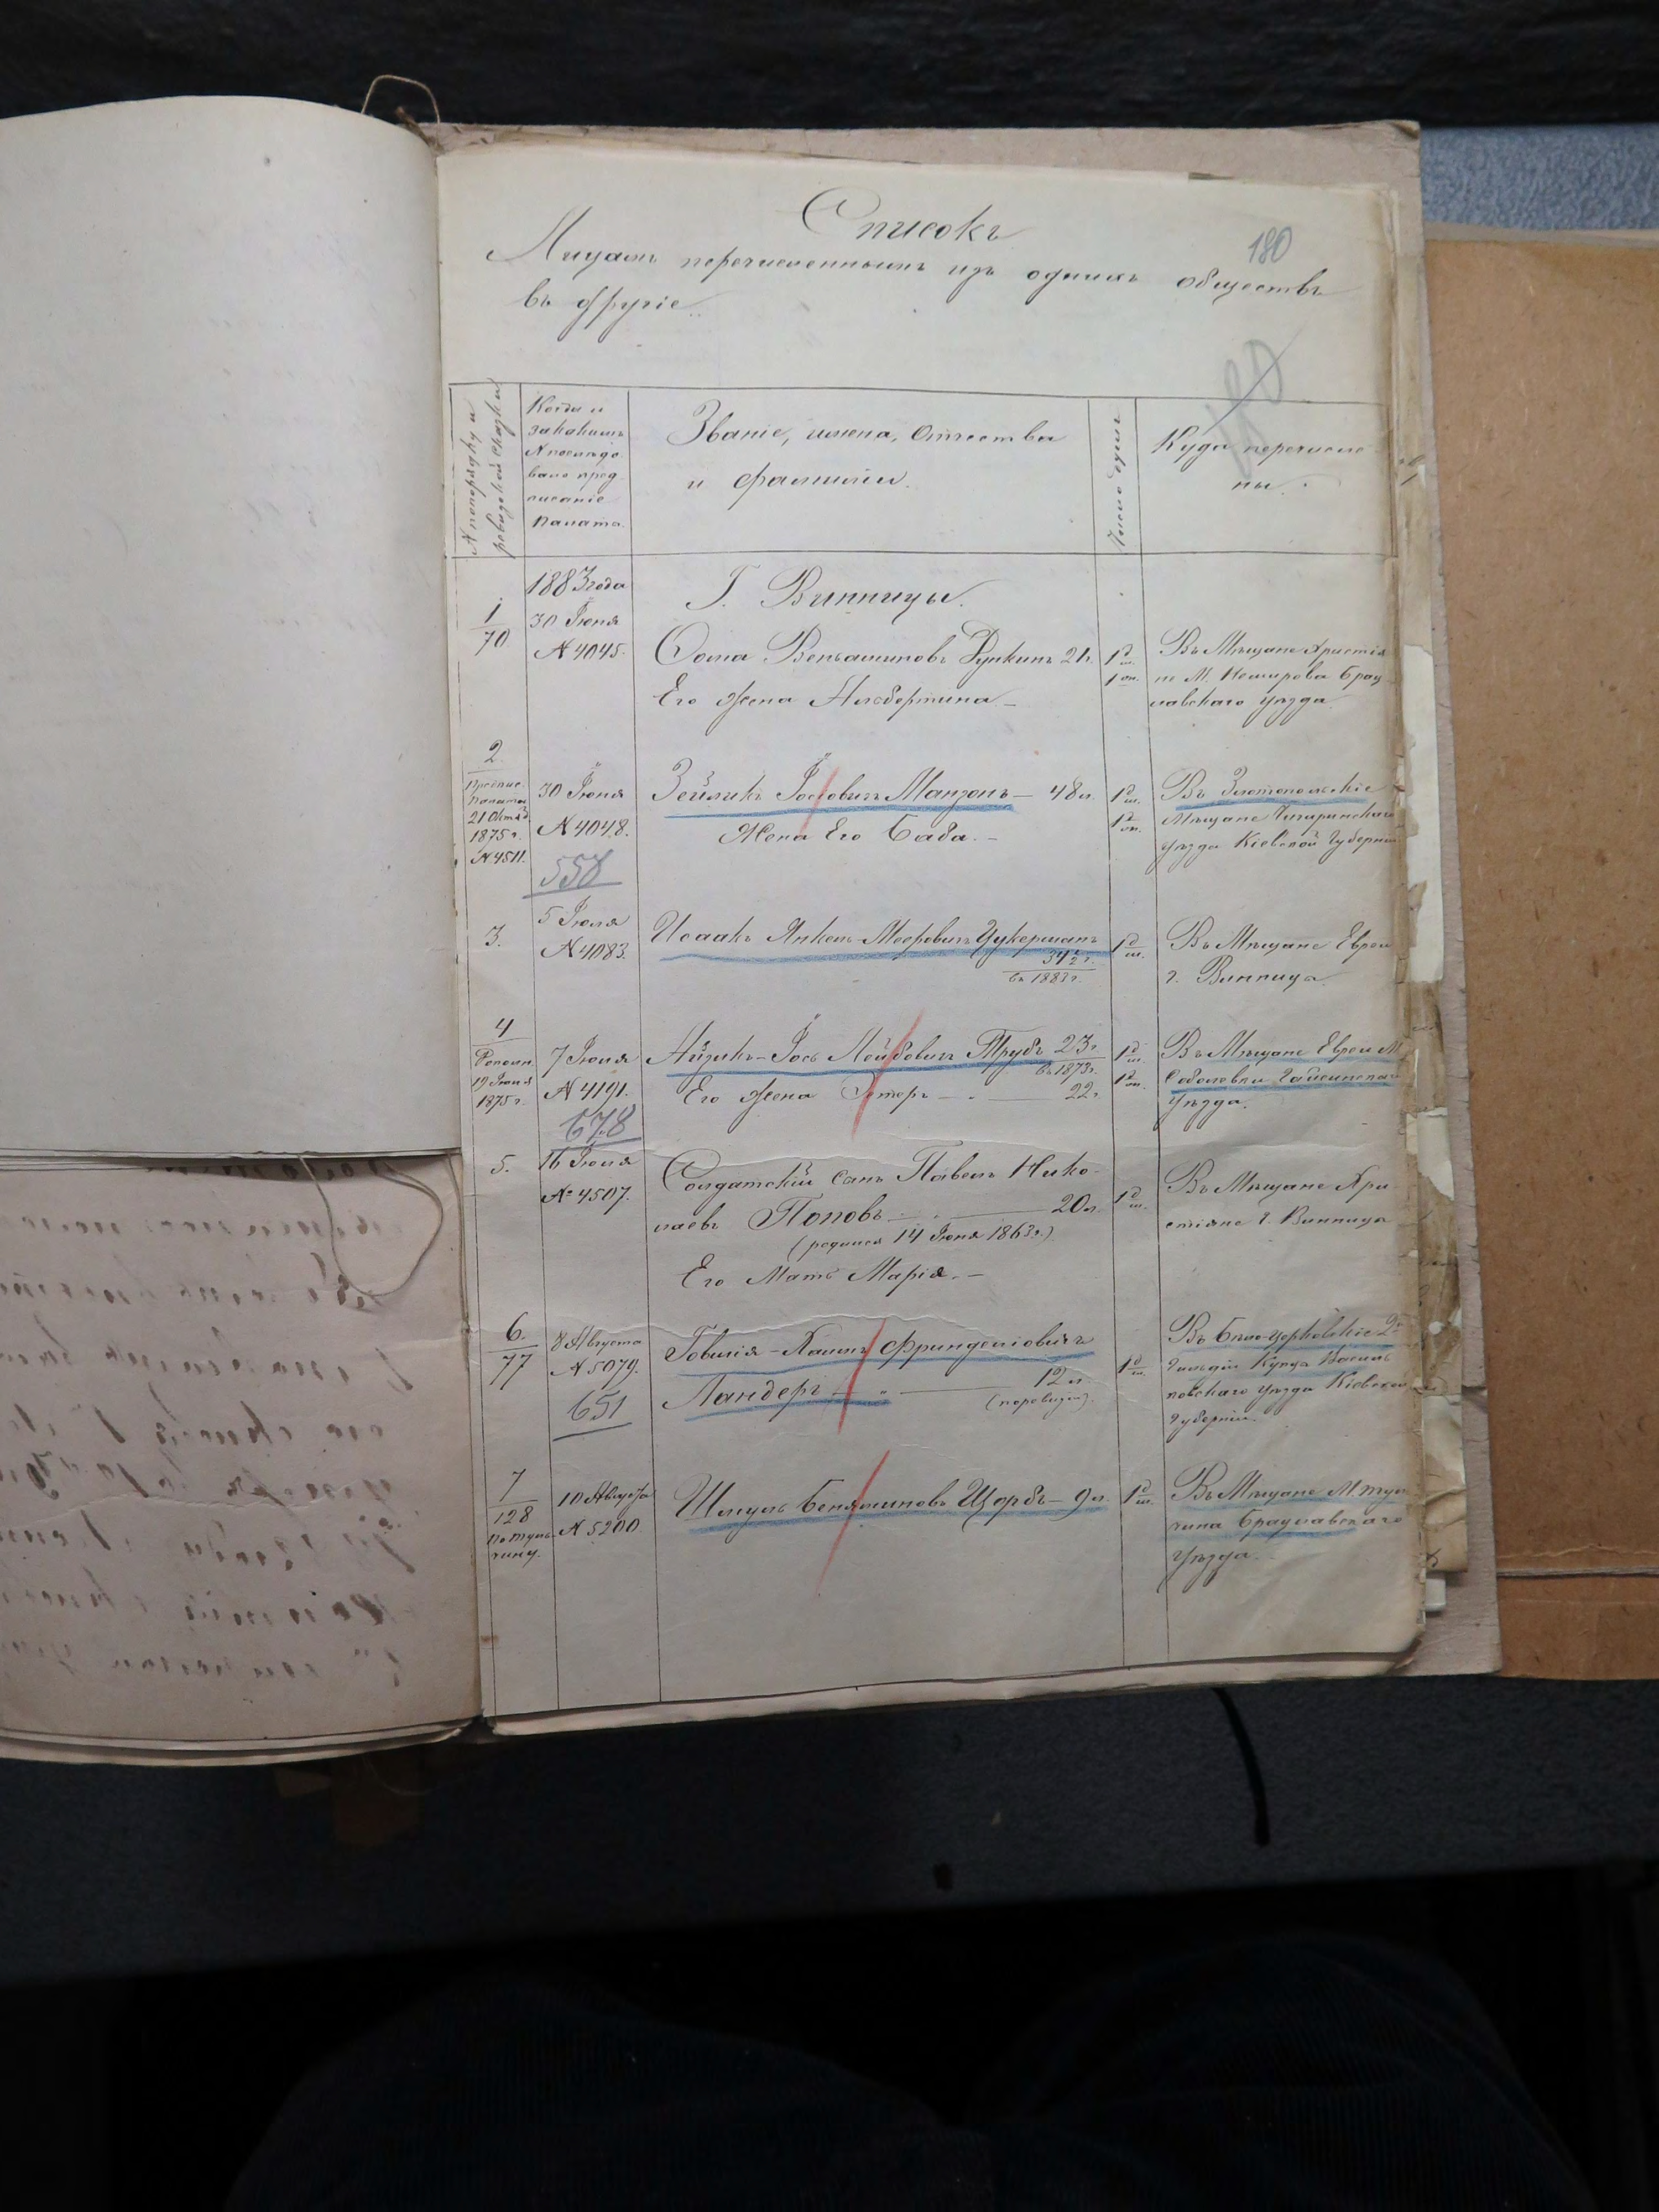 Списокъ
180
Лицамъ перечисленнымъ изъ однихъ обществъ
въ другіе.
N попорядку и ревизской сказки
Когда и
закакимъ
N последо
вало пред
писаніе
палаты.
Званіе, имена, Отчества
и фамиліи.
Число душъ
Куда перечисле
ны.
1883 года
Г. Винницы.
1
70
30 Іюня
N 4045.
Ѳома Веньаминовъ 21 г.
1 д. м.
1 оп.
Его жена Альбертина —
Въ Мѣщане Христіа
не М. Немирова Брац
лавскаго уѣзда.
2.
Предпис.
Палаты
21 Октяб
1875 г.
N 4511.
30 Іюня
N 4048.
558
Зейликъ Іосьовичъ Манзонъ — 48 л.
Жена Его Баба. —
1 д. м.
1 д. оп.
Въ Златопольскіе
Мѣщане Чигиринскаго
уѣзда Кіевской Губерніи
3.
5 Іюля
N 4083.
Исаакъ Янкель Мееровичъ Цукерманъ
34½ г.
въ 1883 г.
1 д. м.
Въ Мѣщане Евреи
г. Винница.
4
19 Іюня
1875 г.
7 Іюля
N 4191.
678
Айзикъ-Іось Лейбовичъ Трубъ 23 г.
въ 1873 г.
Его жена Эстеръ — 22 г.
1 д. м.
1 д. оп.
Въ Мѣщане Евреи М.
Соболевки Гайсинскаго
уѣзда.
5.
16 Іюля
№ 4507.
Солдатскій сынъ Павелъ Нико-
лаевъ Поповъ — 20 л.
(родился 14 Іюня 1863 г.)
Его Мать Марія. —
1 д. м.
Въ Мѣщане Хри
стіане г. Винница
6.
77
8 Августа
N 5079.
651
Товиія-Хаимъ Фринделіовичъ
Ландеръ — 12 л.
(поревизіи).
1 д. м.
Въ Бѣло-Церковскіе 2й
Гильдіи Купца Василь
ковскаго уѣзда Кіевской
Губерніи.
7
128
По Туль
чину.
10 Августа
N 5200.
Шмуль Беняминовъ Щорбъ — 9 л.
1 д. м.
Въ Мѣщане М. Туль
чина Брацлавскаго
Уѣзда.